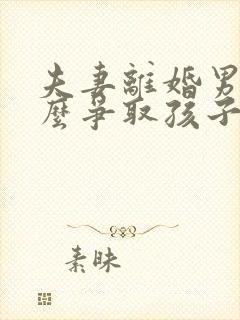 夫妻離婚男
麼爭取孩子
素昧